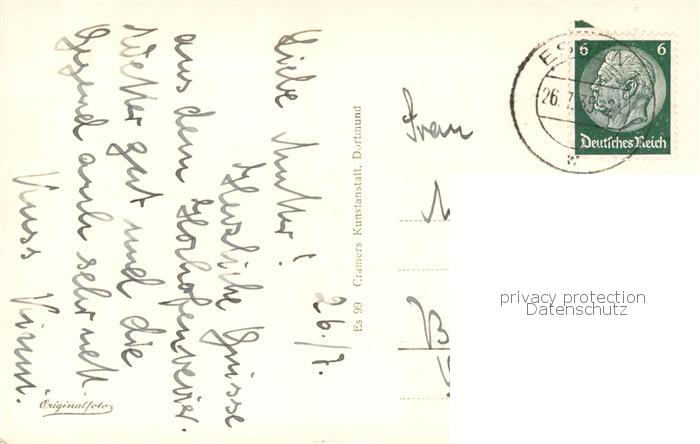 Liebe Mutter!
26./7.
Herzliche Grüsse
aus dem Hochofenrevier.
Wetter gut und die
Gegend auch sehr nett.
Kuss
Originalfoto
Es 99 Cramers Kunstanstalt, Dortmund
Frau
6 6
Deutsches Reich
26.7.
privacy protection
Datenschutz